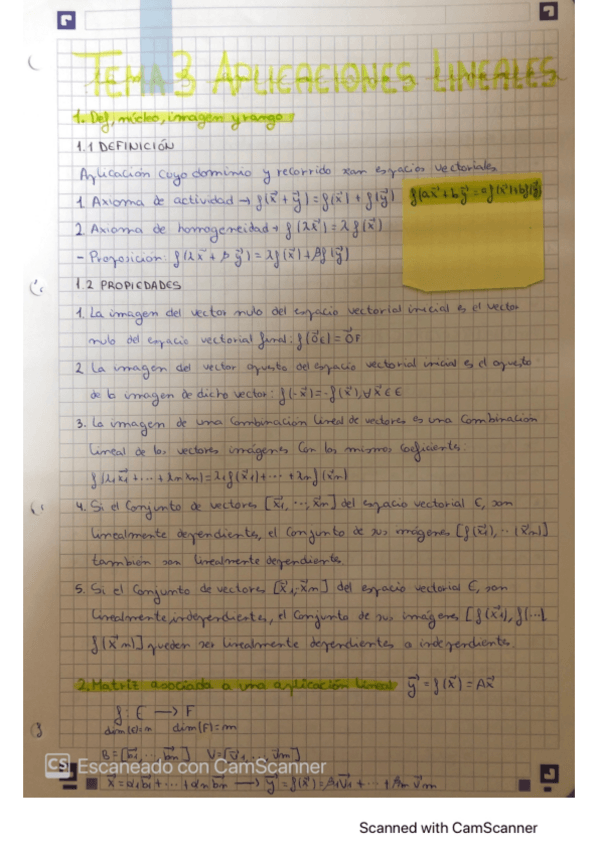 TEMA 3 APLICACIONES LINEALES
1. Def, núcleo, imagen y rango:
1.1 DEFINICIÓN
Aplicación cuyo dominio y recorrido son espacios vectoriales
1. Axioma de actividad → f(x⃗ + y⃗) = f(x⃗) + f(y⃗)
f(ax⃗ + by⃗) = af(x⃗) + bf(y⃗)
2 Axioma de homogeneidad → f(λx⃗) = λf(x⃗)
- Proposición: f(λx⃗ + βy⃗) = λf(x⃗) + βf(y⃗)
1.2 PROPIEDADES
1. La imagen del vector nulo del espacio vectorial inicial es el vector
nulo del espacio vectorial final: f(0⃗E) = 0⃗F
2 La imagen del vector opuesto del espacio vectorial inicial es el opuesto
de la imagen de dicho vector: f(-x⃗) = -f(x⃗), ∀x⃗ ∈ E
3. La imagen de una combinación lineal de vectores es una combinación
lineal de los vectores imágenes con los mismos coeficientes:
f(λ1x⃗1 + ... + λnxn) = λ1f(x⃗1) + ... + λnf(x⃗n)
4. Si el conjunto de vectores [x⃗1, ..., x⃗n] del espacio vectorial E, son
linealmente dependientes, el conjunto de sus imágenes [f(x⃗1), ... (x⃗n)]
tambien son linealmente dependientes.
5. Si el conjunto de vectores [x⃗1, ... x⃗n] del espacio vectorial E, son
linealmente independientes, el conjunto de sus imágenes [f(x⃗1), f(...),
f(x⃗n)] pueden ser linealmente dependientes o independientes.
2. Matriz asociada a una aplicación lineal y⃗ = f(x⃗) = Ax⃗
f: E → F
dim(E)=n dim(F)=m
B = [b⃗1, ..., b⃗n] V = [v⃗1, ..., v⃗m]
x⃗ = α1b⃗1 + ... + αnb⃗n → y⃗ = f(x⃗) = β1v⃗1 + ... + βmv⃗m
CS Escaneado con CamScanner
Scanned with CamScanner